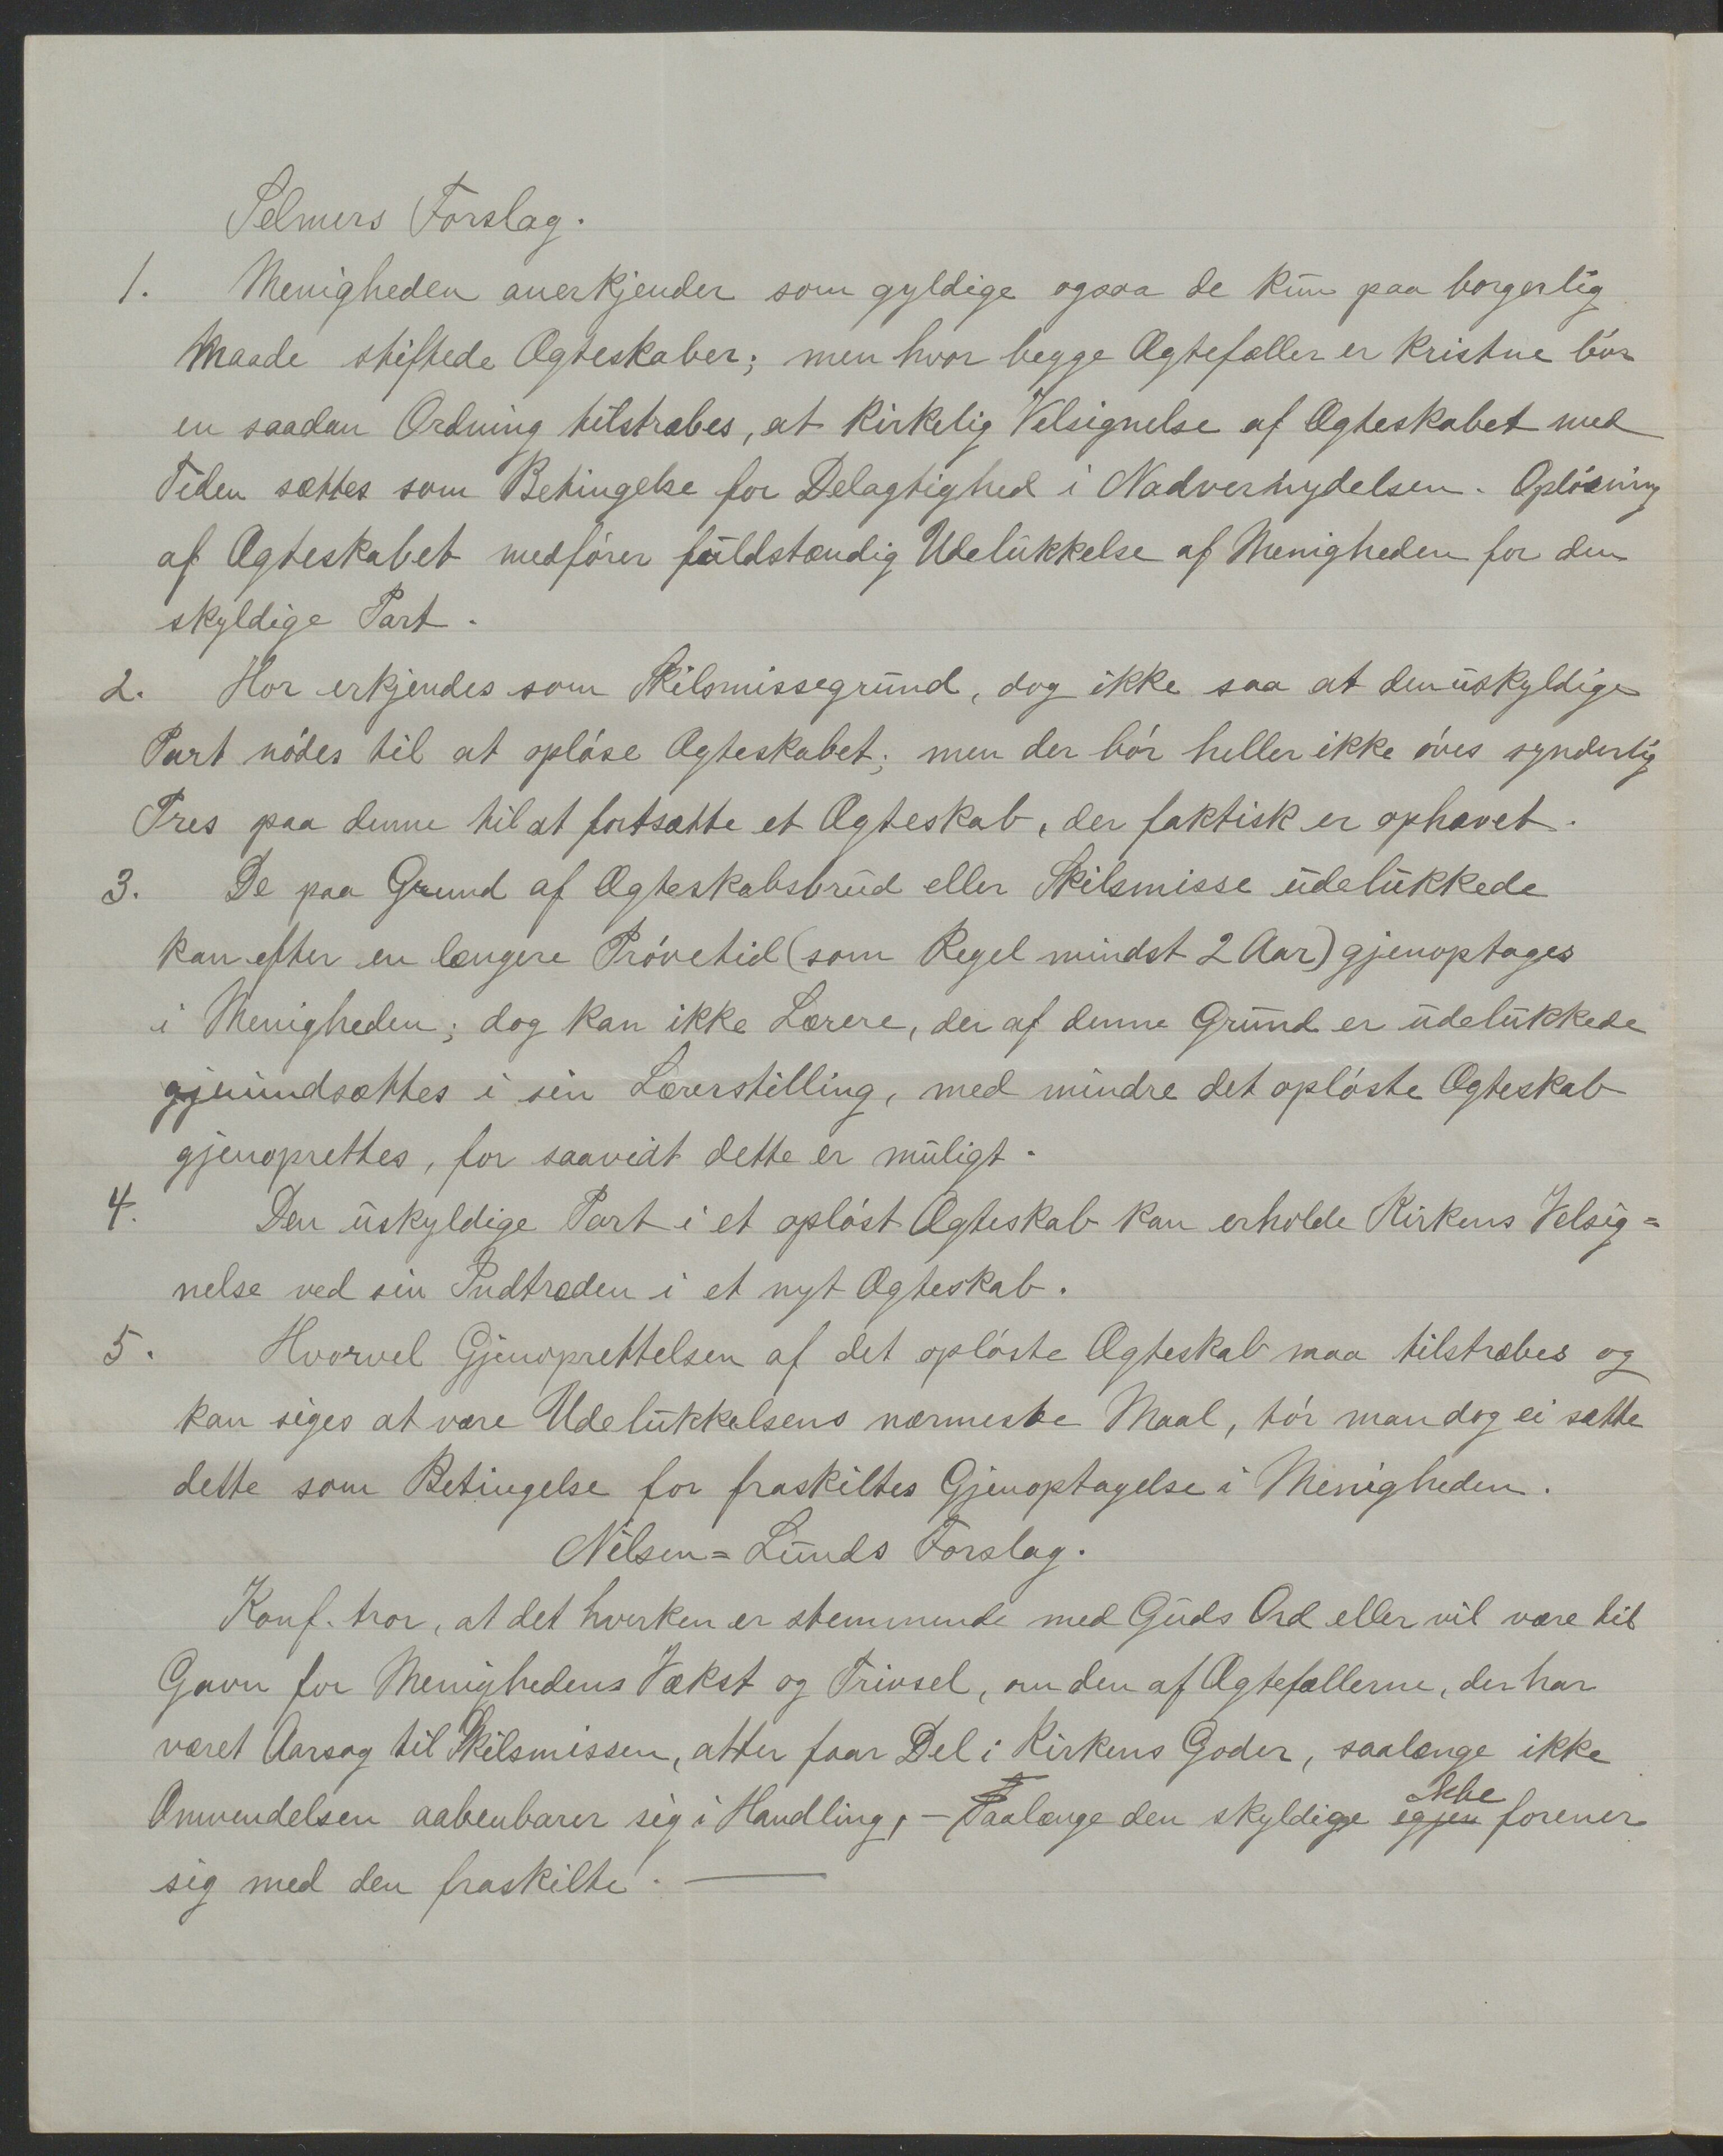 Selmers Forslag.
1. Menigheden anerkjender som gyldige ogsaa de kun paa borgerlig
Maade stiftede Ægteskaber; men hvor begge Ægtefæller er kristne bör
en saadan Ordning tilstræbes, at kirkelig Velsignelse af Ægteskabet med
Tiden sættes som Betingelse for Delagtighed i Nadvernydelsen. Oplösning
af Ægteskabet medförer fuldstændig Udelukkelse af Menigheden for den
skyldige Part.
2. Hor erkjendes som Skilsmissegrund, dog ikke saa at den uskyldige
Part nödes til at oplöse Ægteskabet; men der bör heller ikke öves synderlig
Pres paa denne til at fortsætte et Ægteskab, der faktisk er ophævet.
3. De paa Grund af Ægteskabsbrud eller Skilsmisse udelukkede
kan efter en længere Prövetid (som Regel mindst 2 Aar) gjenoptages
i Menigheden; dog kan ikke Lærere, der af denne Grund er udelukkede
gjenindsættes i sin Lærerstilling, med mindre det oplöste Ægteskab
gjenoprettes, for saavidt dette er muligt.
4. Den uskyldige Part i et oplöst Ægteskab kan erholde Kirkens Velsig=
nelse ved sin Indtræden i et nyt Ægteskab.
5. Hvorvel Gjenoprettelsen af det oplöste Ægteskab maa tilstræbes og
kan siges at være Udelukkelsens nærmeste Maal, tör man dog ei sætte
dette som Betingelse for fraskiltes Gjenoptagelse i Menigheden.
Nilsen=Lunds Forslag.
Konf. tror, at det hverken er stemmende med Guds Ord eller vil være til
Gavn for Menighedens Vækst og Trivsel, om den af Ægtefællerne, der har
været Aarsag til Skilsmissen, atter faar Del i Kirkens Goder, saalænge ikke
Omvendelsen aabenbarer sig i Handling, – Saalænge den skyldige egjen ikke forener
sig med den fraskilte. —